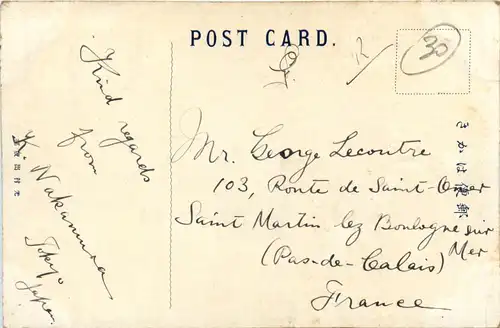 POST CARD.
30
Kind regards
from
K. Nakamura
Tokyo
Japan
Mr. George Lecoutre
103, Route de Saint-Omer
Saint Martin lez Boulogne sur
Mer
(Pas-de-Calais)
France
きかは便郵